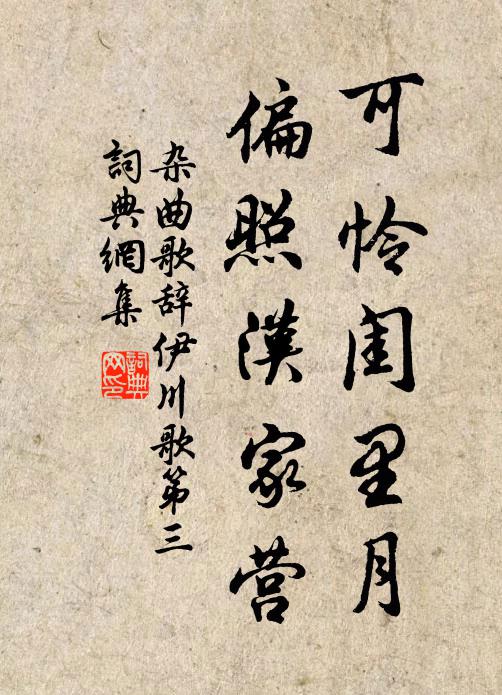 可怜闺里月
偏照漢家营
杂曲歌辞伊川歌第三
詞典網集
詞典
网印